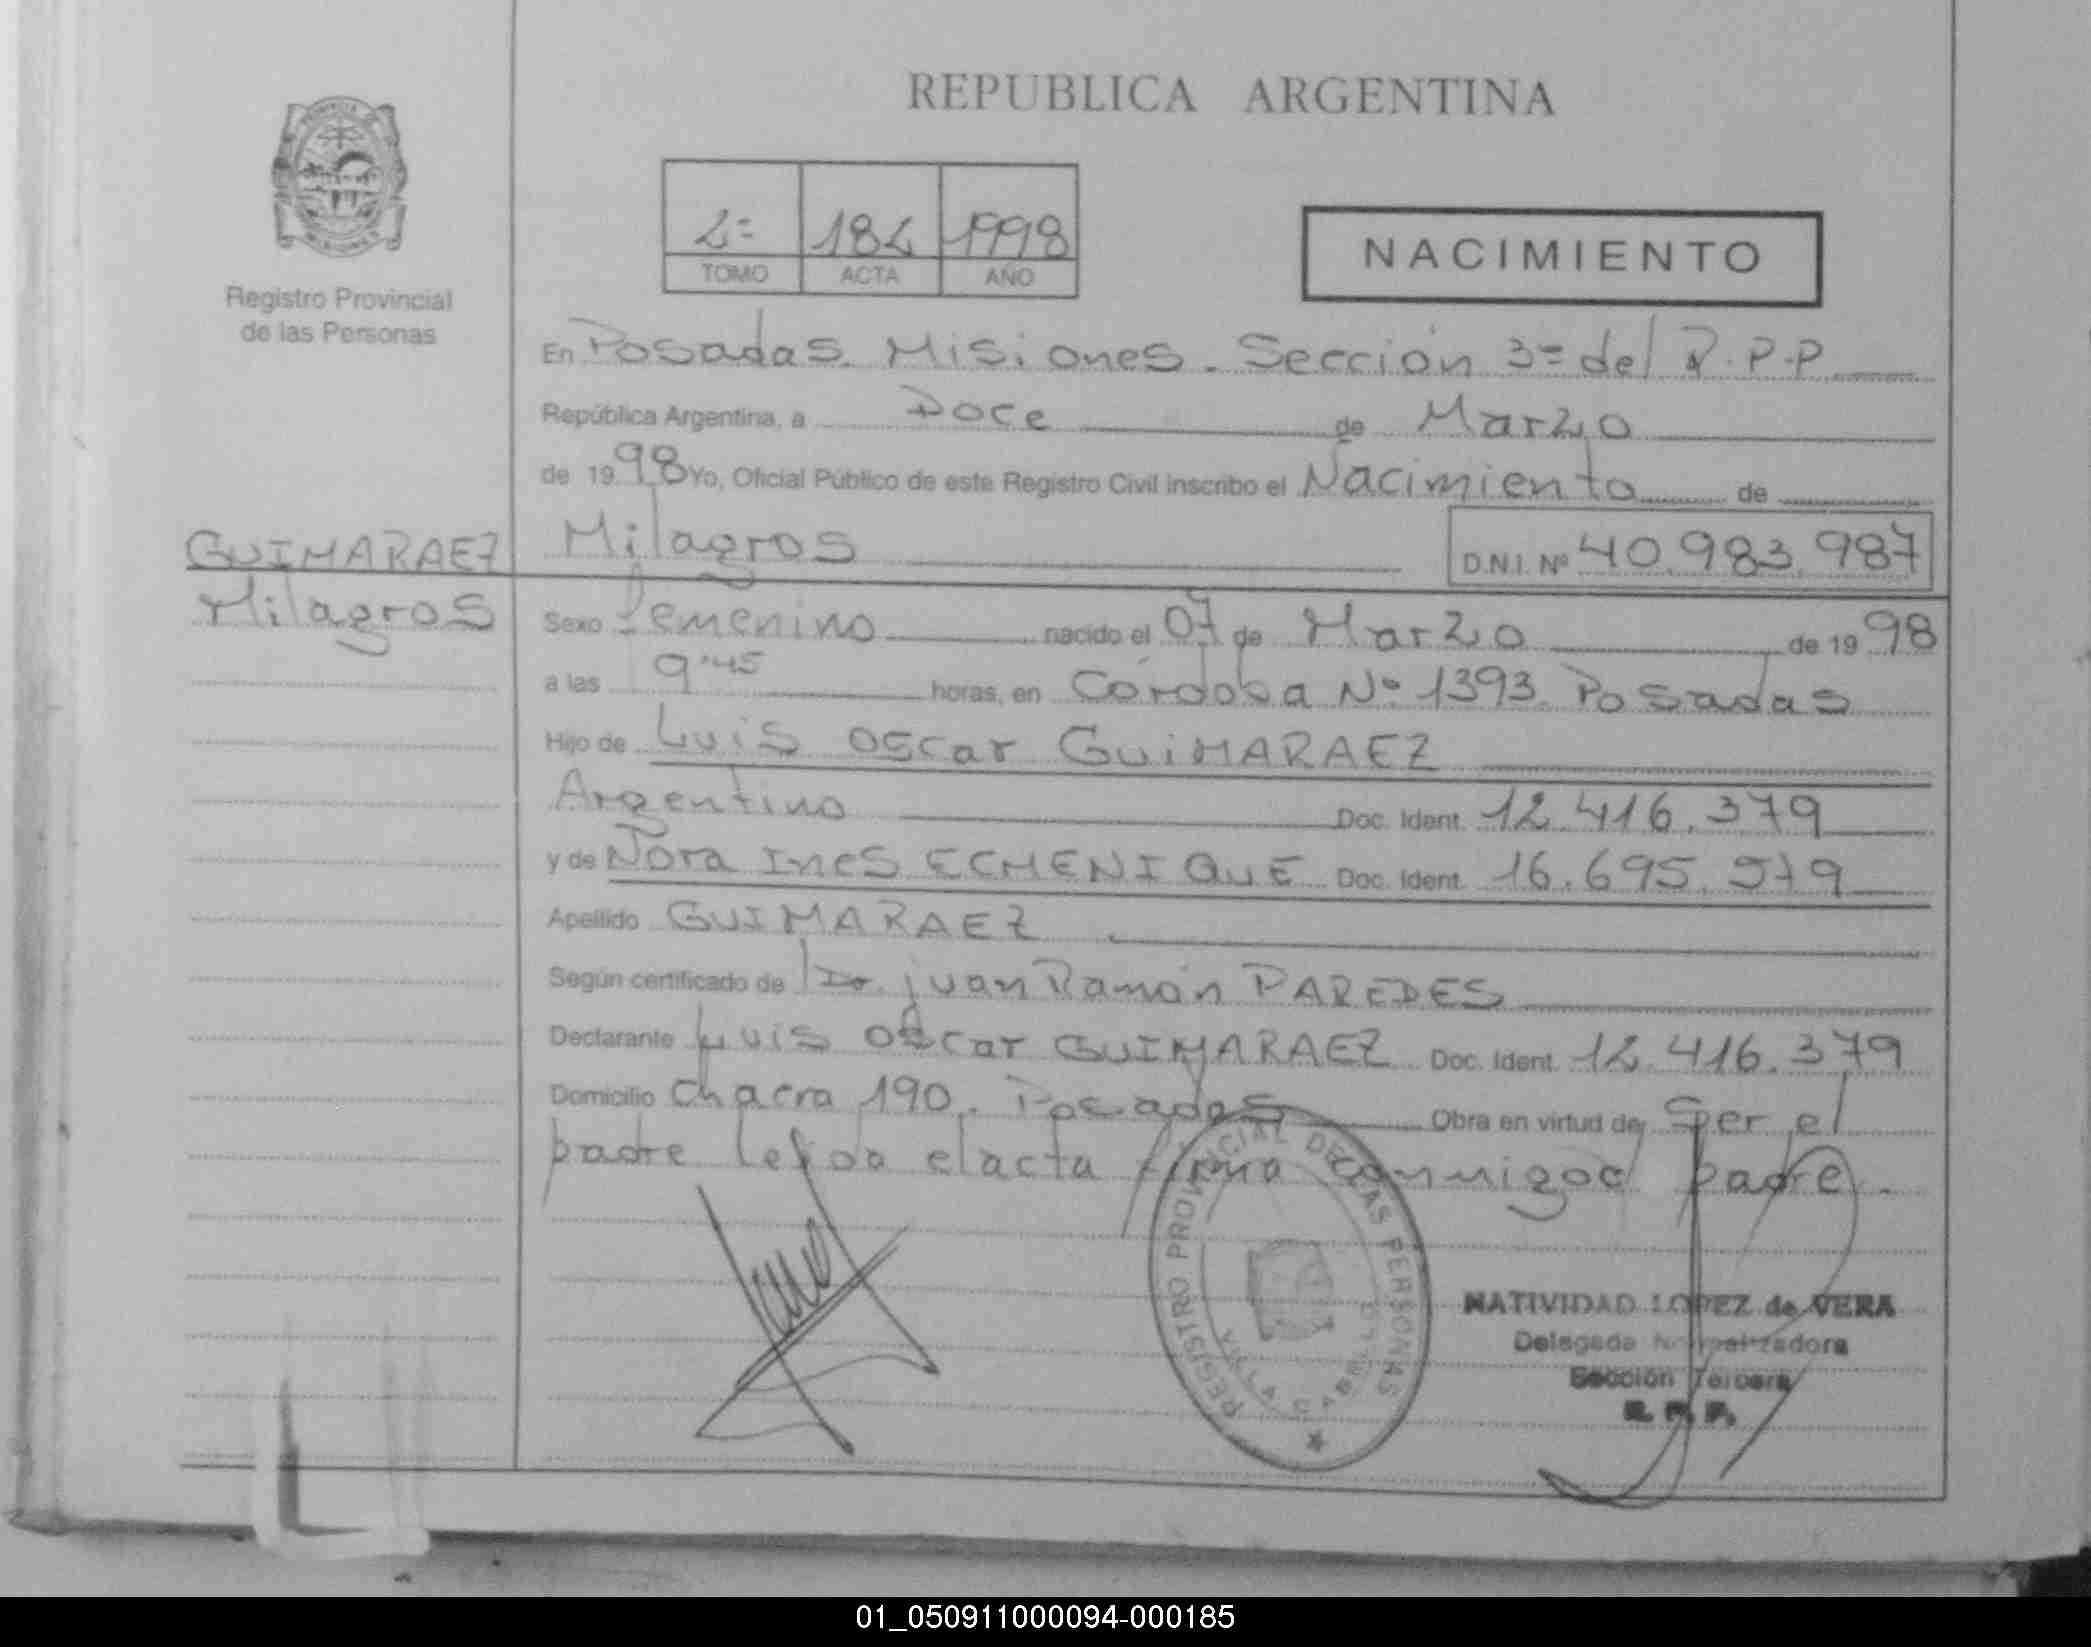 REPUBLICA ARGENTINA
2= 182 1998
TOMO ACTA AÑO
NACIMIENTO
Registro Provincial
de las Personas
En Posadas. Misiones. Sección 3= del R.P.P
República Argentina, a Doce de Marzo
de 1998 Yo, Oficial Público de este Registro Civil inscribo el Nacimiento de
GUIMARAEZ
Milagros
Milagros D.N.I. Nº 40.983.987
Sexo femenino nacido el 07 de Marzo de 1998
a las 9.45 horas, en Córdoba Nº 1393. Posadas
Hijo de Luis Oscar GuiMARAEZ
Argentino Doc. Ident. 12.416.379
y de Nora Ines ECHENIQUE Doc. Ident. 16.695.579
Apellido GUIMARAEZ
Según certificado de Dr. juan Ramón PAREDES
Declarante Luis Oscar GUIMARAEZ Doc. Ident. 12.416.379
Domicilio Chacra 190. Posadas Obra en virtud de Ser el
padre leida el acta firma conmigo el padre.
REGISTRO PROVINCIAL DE LAS PERSONAS
VILLA CABELLO
NATIVIDAD LOPEZ de VERA
Delegada Normalizadora
Sección Tercera
R. P. P.
01_050911000094-000185